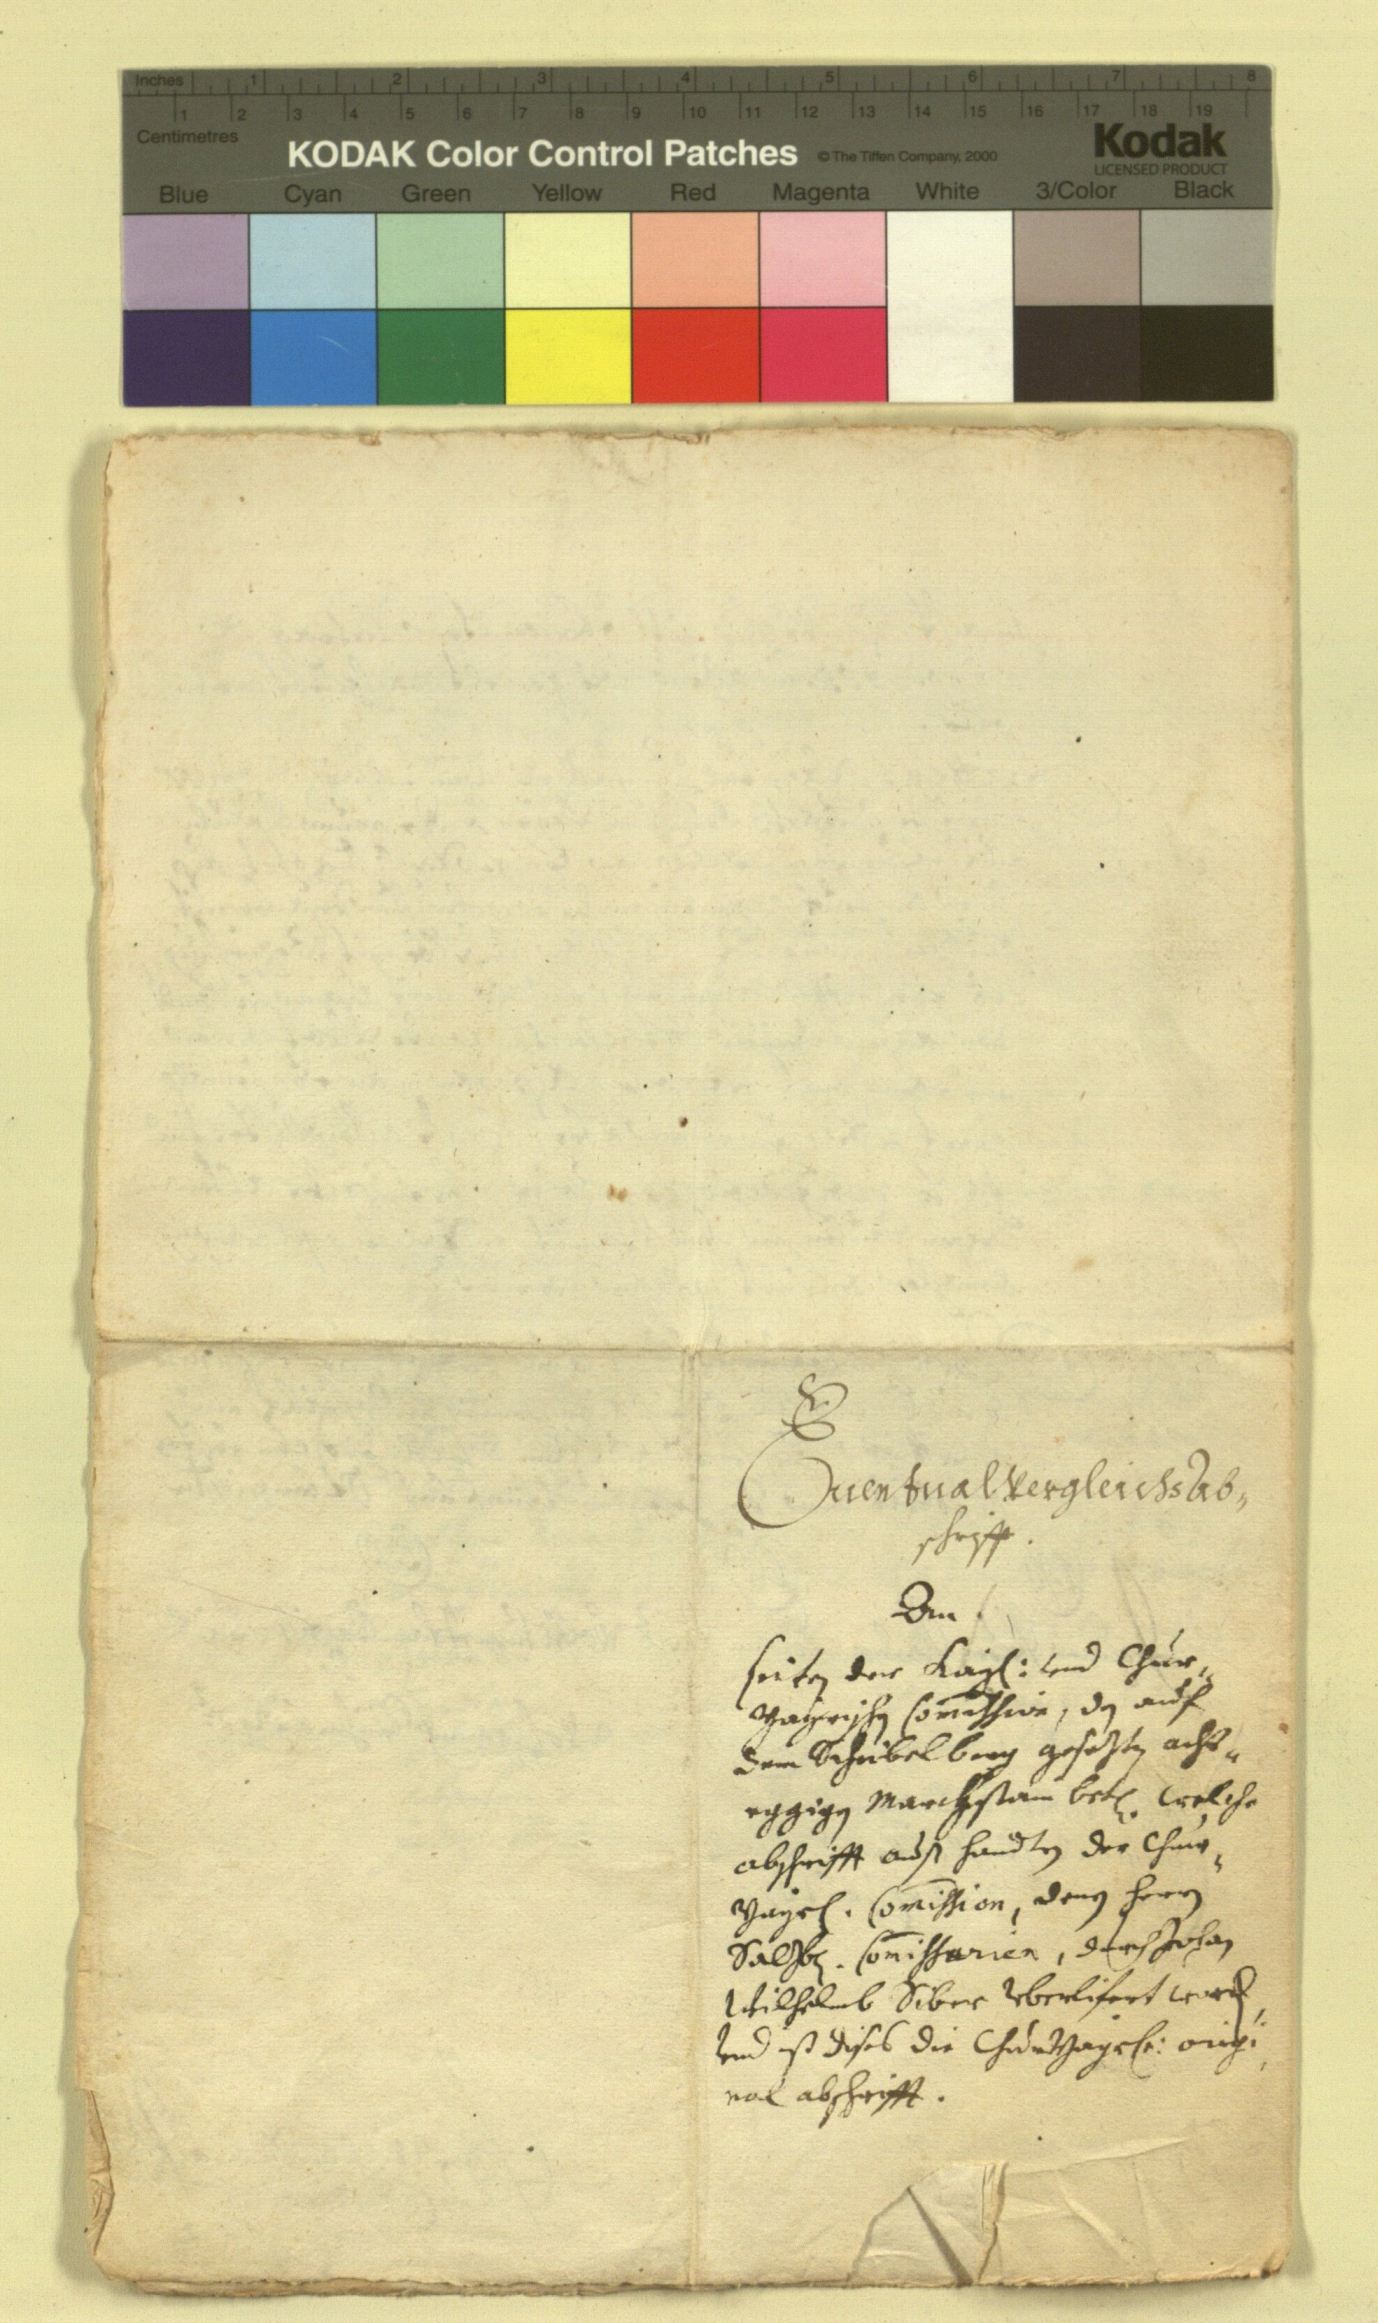 Inches 1 2 3 4 5 6 7 8
1 2 3 4 5 6 7 8 9 10 11 12 13 14 15 16 17 18 19
Centimetres
KODAK Color Control Patches © The Tiffen Company, 2000 Kodak
LICENSED PRODUCT
Blue Cyan Green Yellow Red Magenta White 3/Color Black
Euentual Vergleichs Ab„
schrifft.
Den
seiten der Kayl: vnd Chur„
Bayrischen Commission, den auf
dem Scheibelberg gesezten acht„
eggigen Marchstain betr. welche
abschrifft auß handten der Chur„
Bayrl. Commission, denen herrn
Salzb. Commissarien, durch Johan
Wilhelmb Siber Vberlifert worden,
Vnd ist dises die ChurBayrl: origi
nal abschrifft.